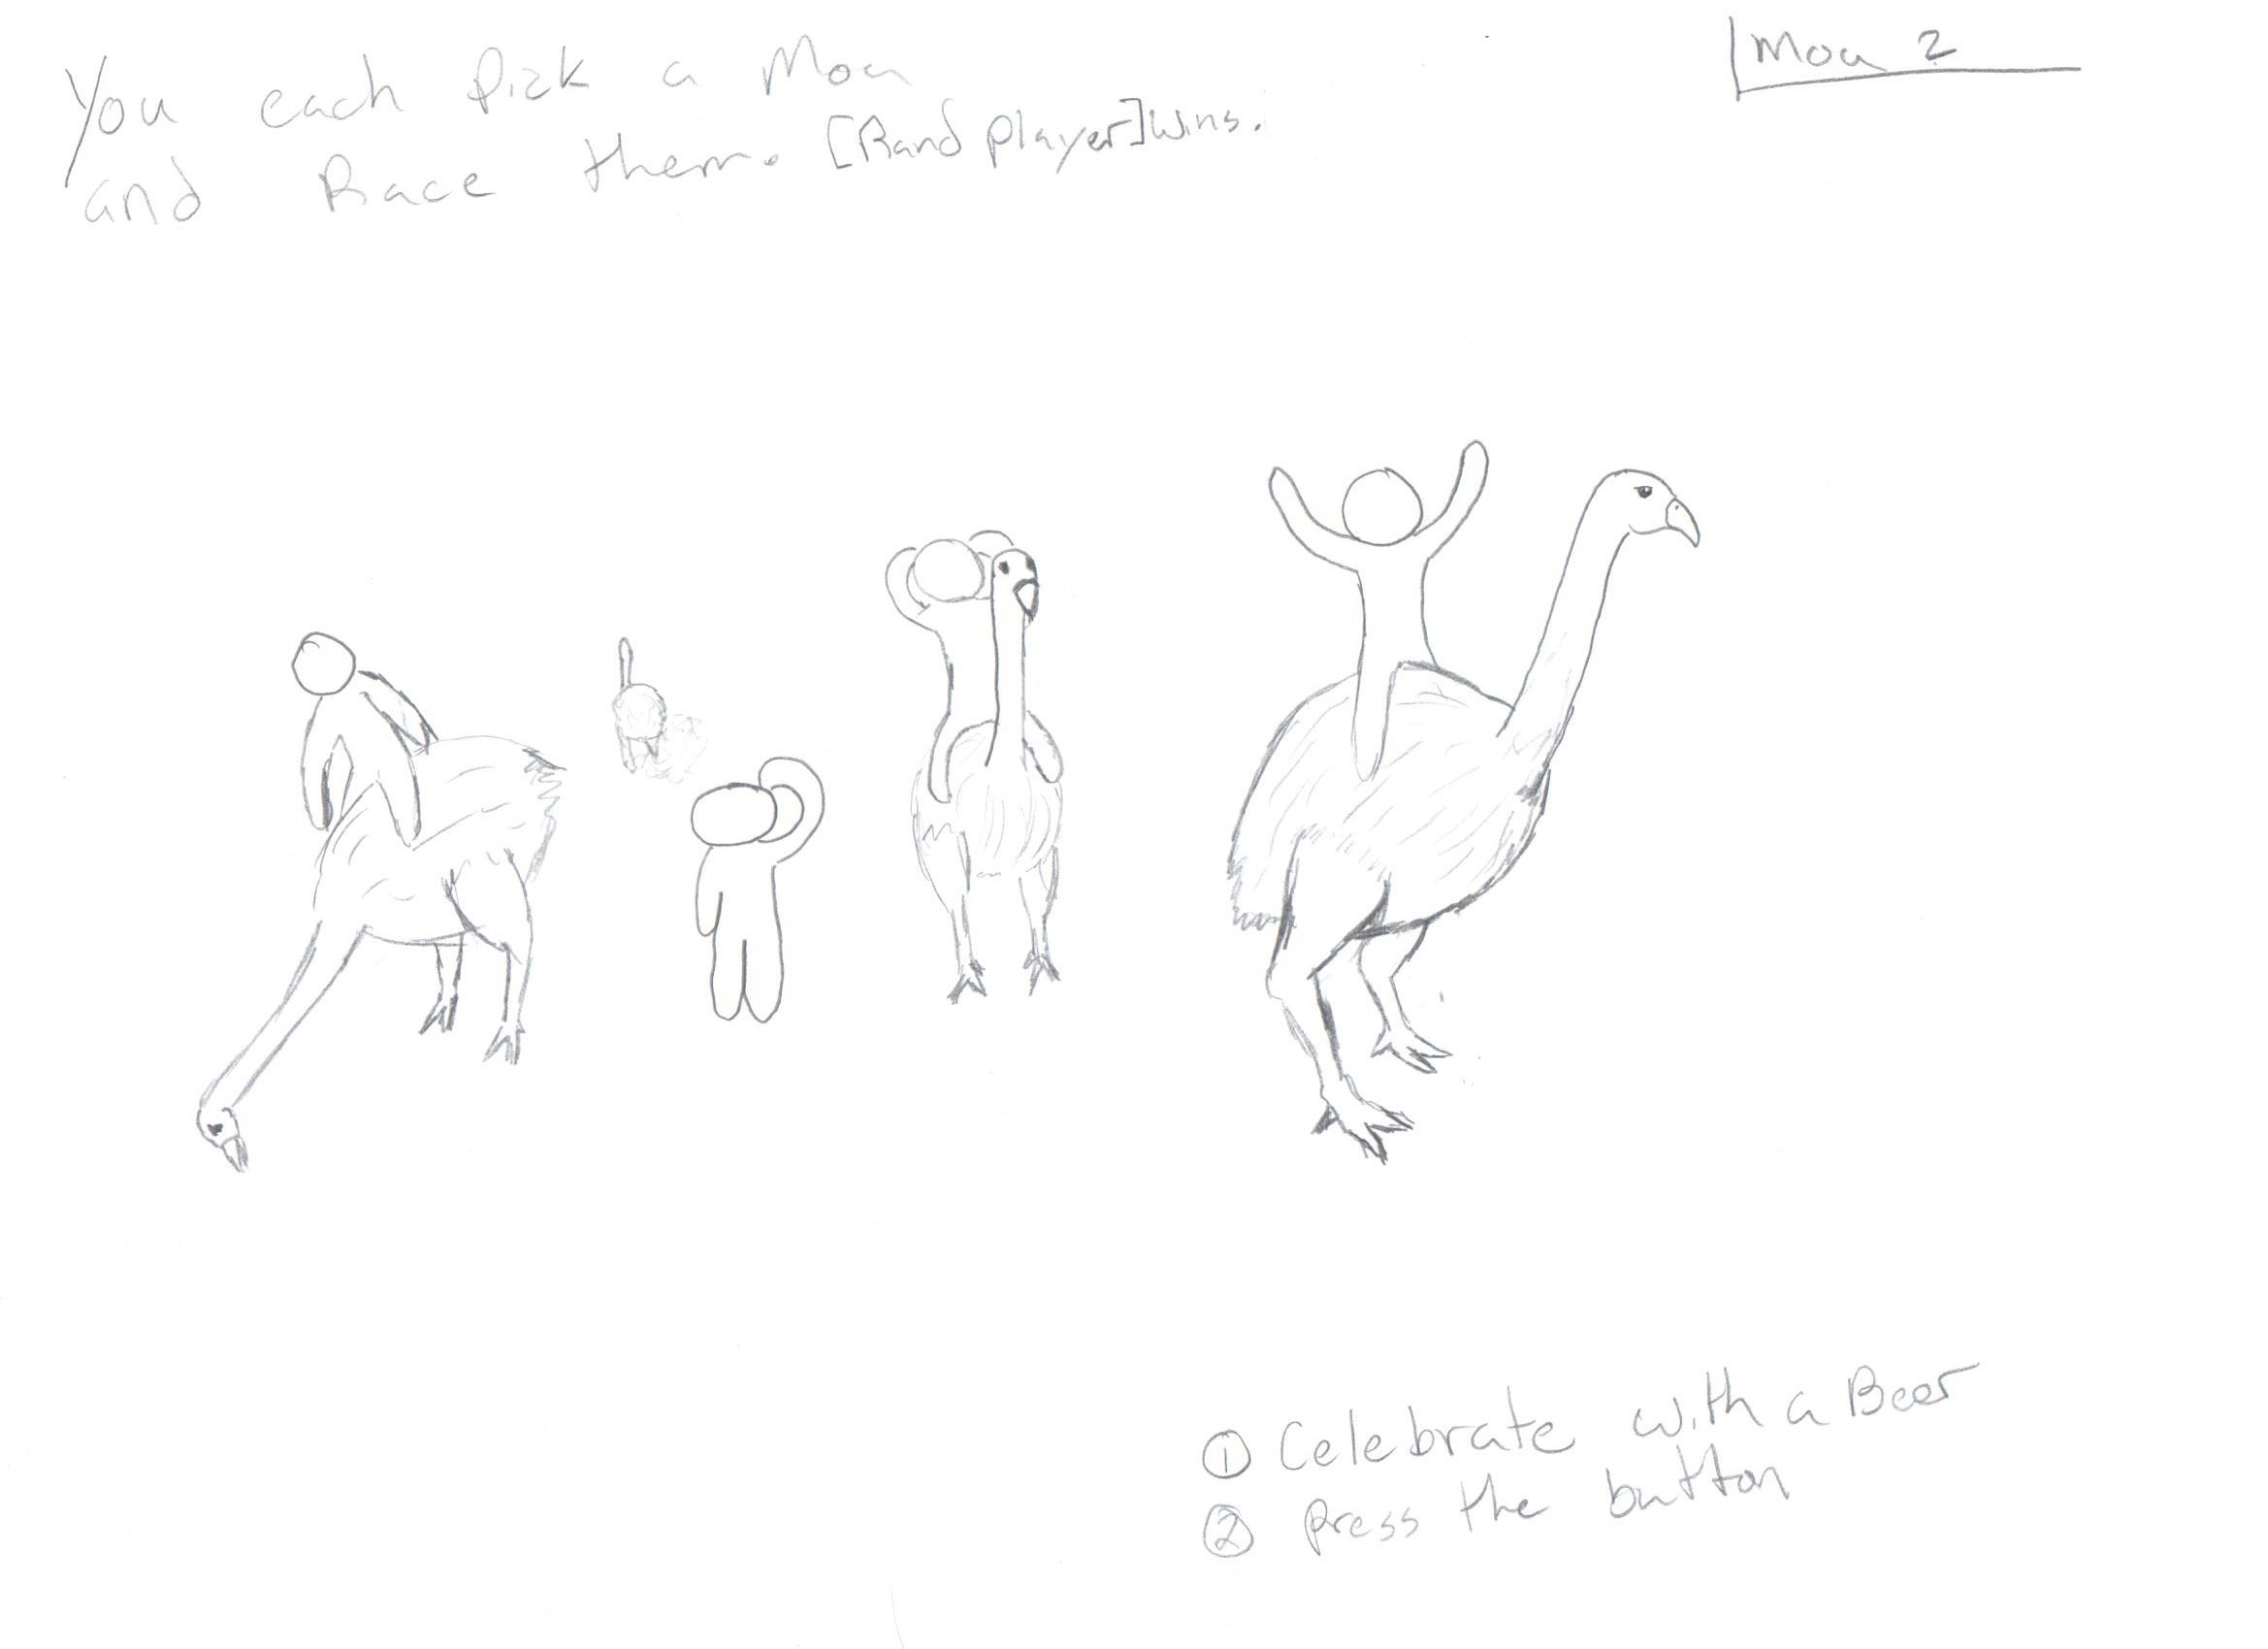 Moa 2
You each pick a Moa
and Race them. [Rand player] wins.
① Celebrate with a Beer
② press the button